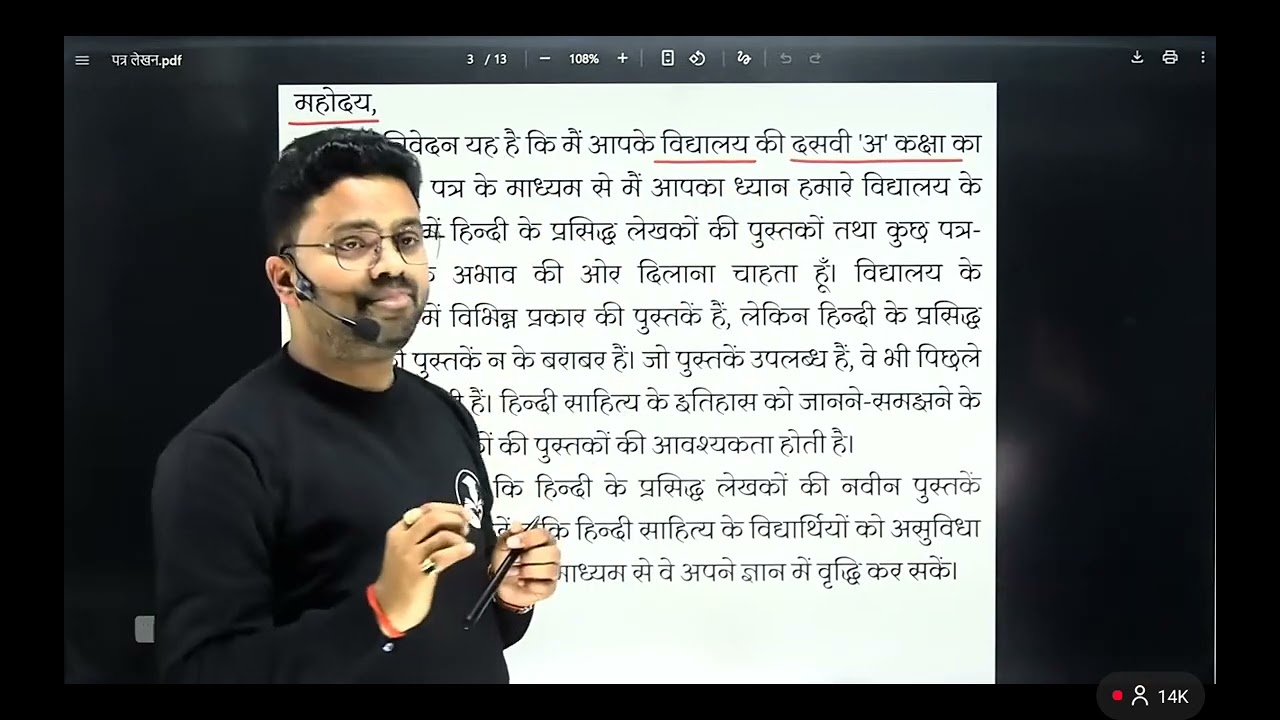 पत्र लेखन.pdf
3 / 13
108%
महोदय,
निवेदन यह है कि मैं आपके विद्यालय की दसवी 'अ' कक्षा का
पत्र के माध्यम से मैं आपका ध्यान हमारे विद्यालय के
में हिन्दी के प्रसिद्ध लेखकों की पुस्तकों तथा कुछ पत्र-
अभाव की ओर दिलाना चाहता हूँ। विद्यालय के
में विभिन्न प्रकार की पुस्तकें हैं, लेकिन हिन्दी के प्रसिद्ध
पुस्तकें न के बराबर हैं। जो पुस्तकें उपलब्ध हैं, वे भी पिछले
हैं। हिन्दी साहित्य के इतिहास को जानने-समझने के
की पुस्तकों की आवश्यकता होती है।
कि हिन्दी के प्रसिद्ध लेखकों की नवीन पुस्तकें
हिन्दी साहित्य के विद्यार्थियों को असुविधा
माध्यम से वे अपने ज्ञान में वृद्धि कर सकें।
14K